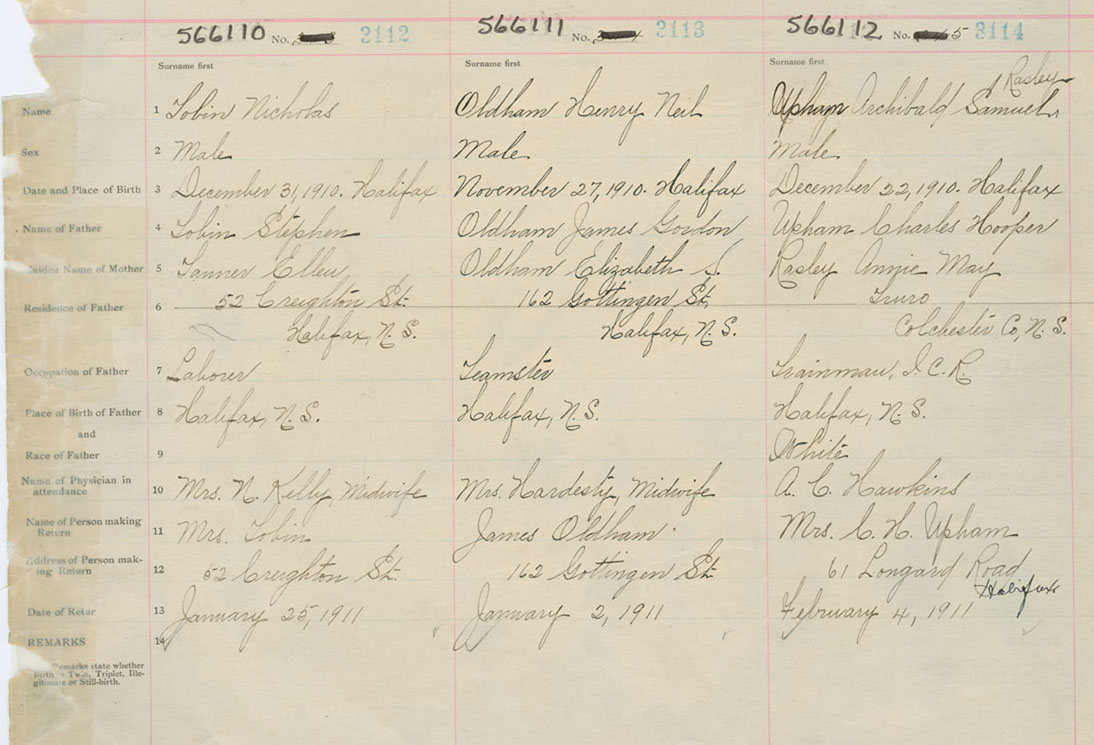 566110 No. 3112 566111 No. 3113 566112 No. 5 3114
Surname first Surname first Surname first
Rasley
Name 1 Tobin Nicholas Oldham Henry Neil Upham Archibald Samuel
Sex 2 Male Male Male
Date and Place of Birth 3 December 31, 1910. Halifax November 27, 1910. Halifax December 22, 1910. Halifax
Name of Father 4 Tobin Stephen Oldham James Gordon Upham Charles Hooper
Maiden Name of Mother 5 Tanner Ellen Oldham Elizabeth S. Rasley Annie May
Residence of Father 6 52 Creighton St. 162 Gottingen St. Truro
Halifax, N.S. Halifax, N.S. Colchester Co, N.S.
Occupation of Father 7 Laborer Teamster Trainman, I.C.R.
Place of Birth of Father 8 Halifax, N.S. Halifax, N.S. Halifax, N.S.
and
Race of Father 9 White
Name of Physician in attendance 10 Mrs. N. Kelly, Midwife Mrs. Hardesty, Midwife A. C. Hawkins
Name of Person making Return 11 Mrs. Tobin James Oldham Mrs. C. H. Upham
Address of Person making Return 12 52 Creighton St. 162 Gottingen St. 61 Longard Road
Halifax
Date of Retur 13 January 25, 1911 January 2, 1911 February 4, 1911
REMARKS 14
Remarks state whether
Birth is Twin, Triplet, Ille-
gitimate or Still-birth.